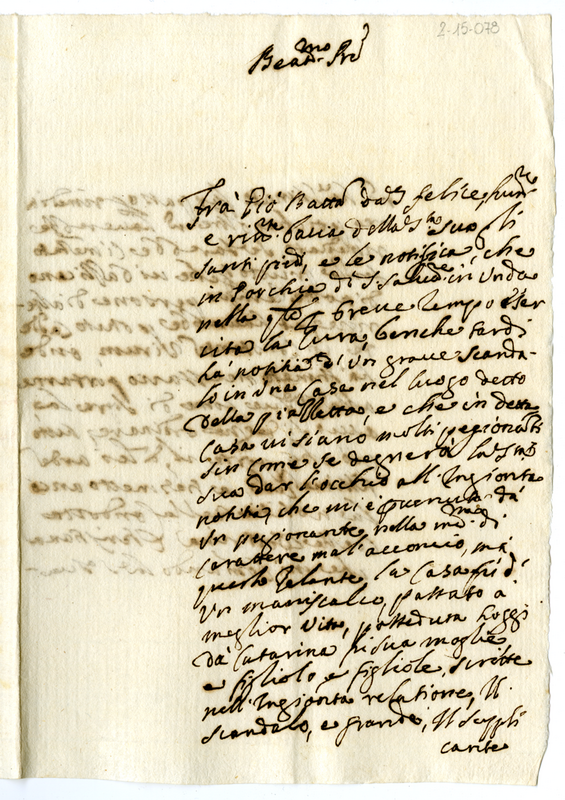 2-15-078
Bea.mo Pre
Frà Pio Batta da S felice hum.
e riv.te bacia della S. sua li
santi piedi, e le notifica, che
in Porchia di S. Salv.re in Unda
nella q.le breve tempo eser
cita la Cura, benche tardi
hà notitia d'un grave scanda-
lo in una Casa nel luogo detto
della piazzetta, e che in detta
Casa vi siano molti pegionanti
sin come se degnerà la S.
sua dar l'occhio all'Ingionta
notitia, che mi è pervenuta da
un pegionante, nella me.ma di
carattere mal'acconcio, mà
questo Zelante, la Casa fù di
un maniscalco, passato à
meglior vita, posseduta hoggi
dà Catarina fù sua moglie
e figliolo, e figliole, scritte
nell'Ingionta relatione, Il
scandalo, e grande, Il suppli
cante